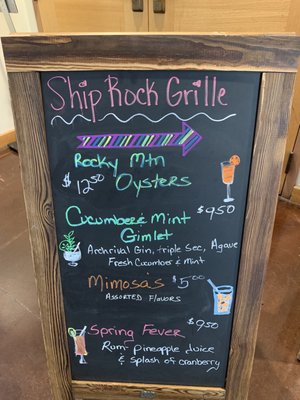 Ship Rock Grille
Rocky Mtn
$12.50 Oysters
$9.50
Cucumber & Mint
Gimlet
Archrival Gin, triple Sec, Agave
Fresh Cucumber & Mint
Mimosa's $5.00
Assorted Flavors
Spring Fever $9.50
Rum Pineapple Juice
& splash of cranberry